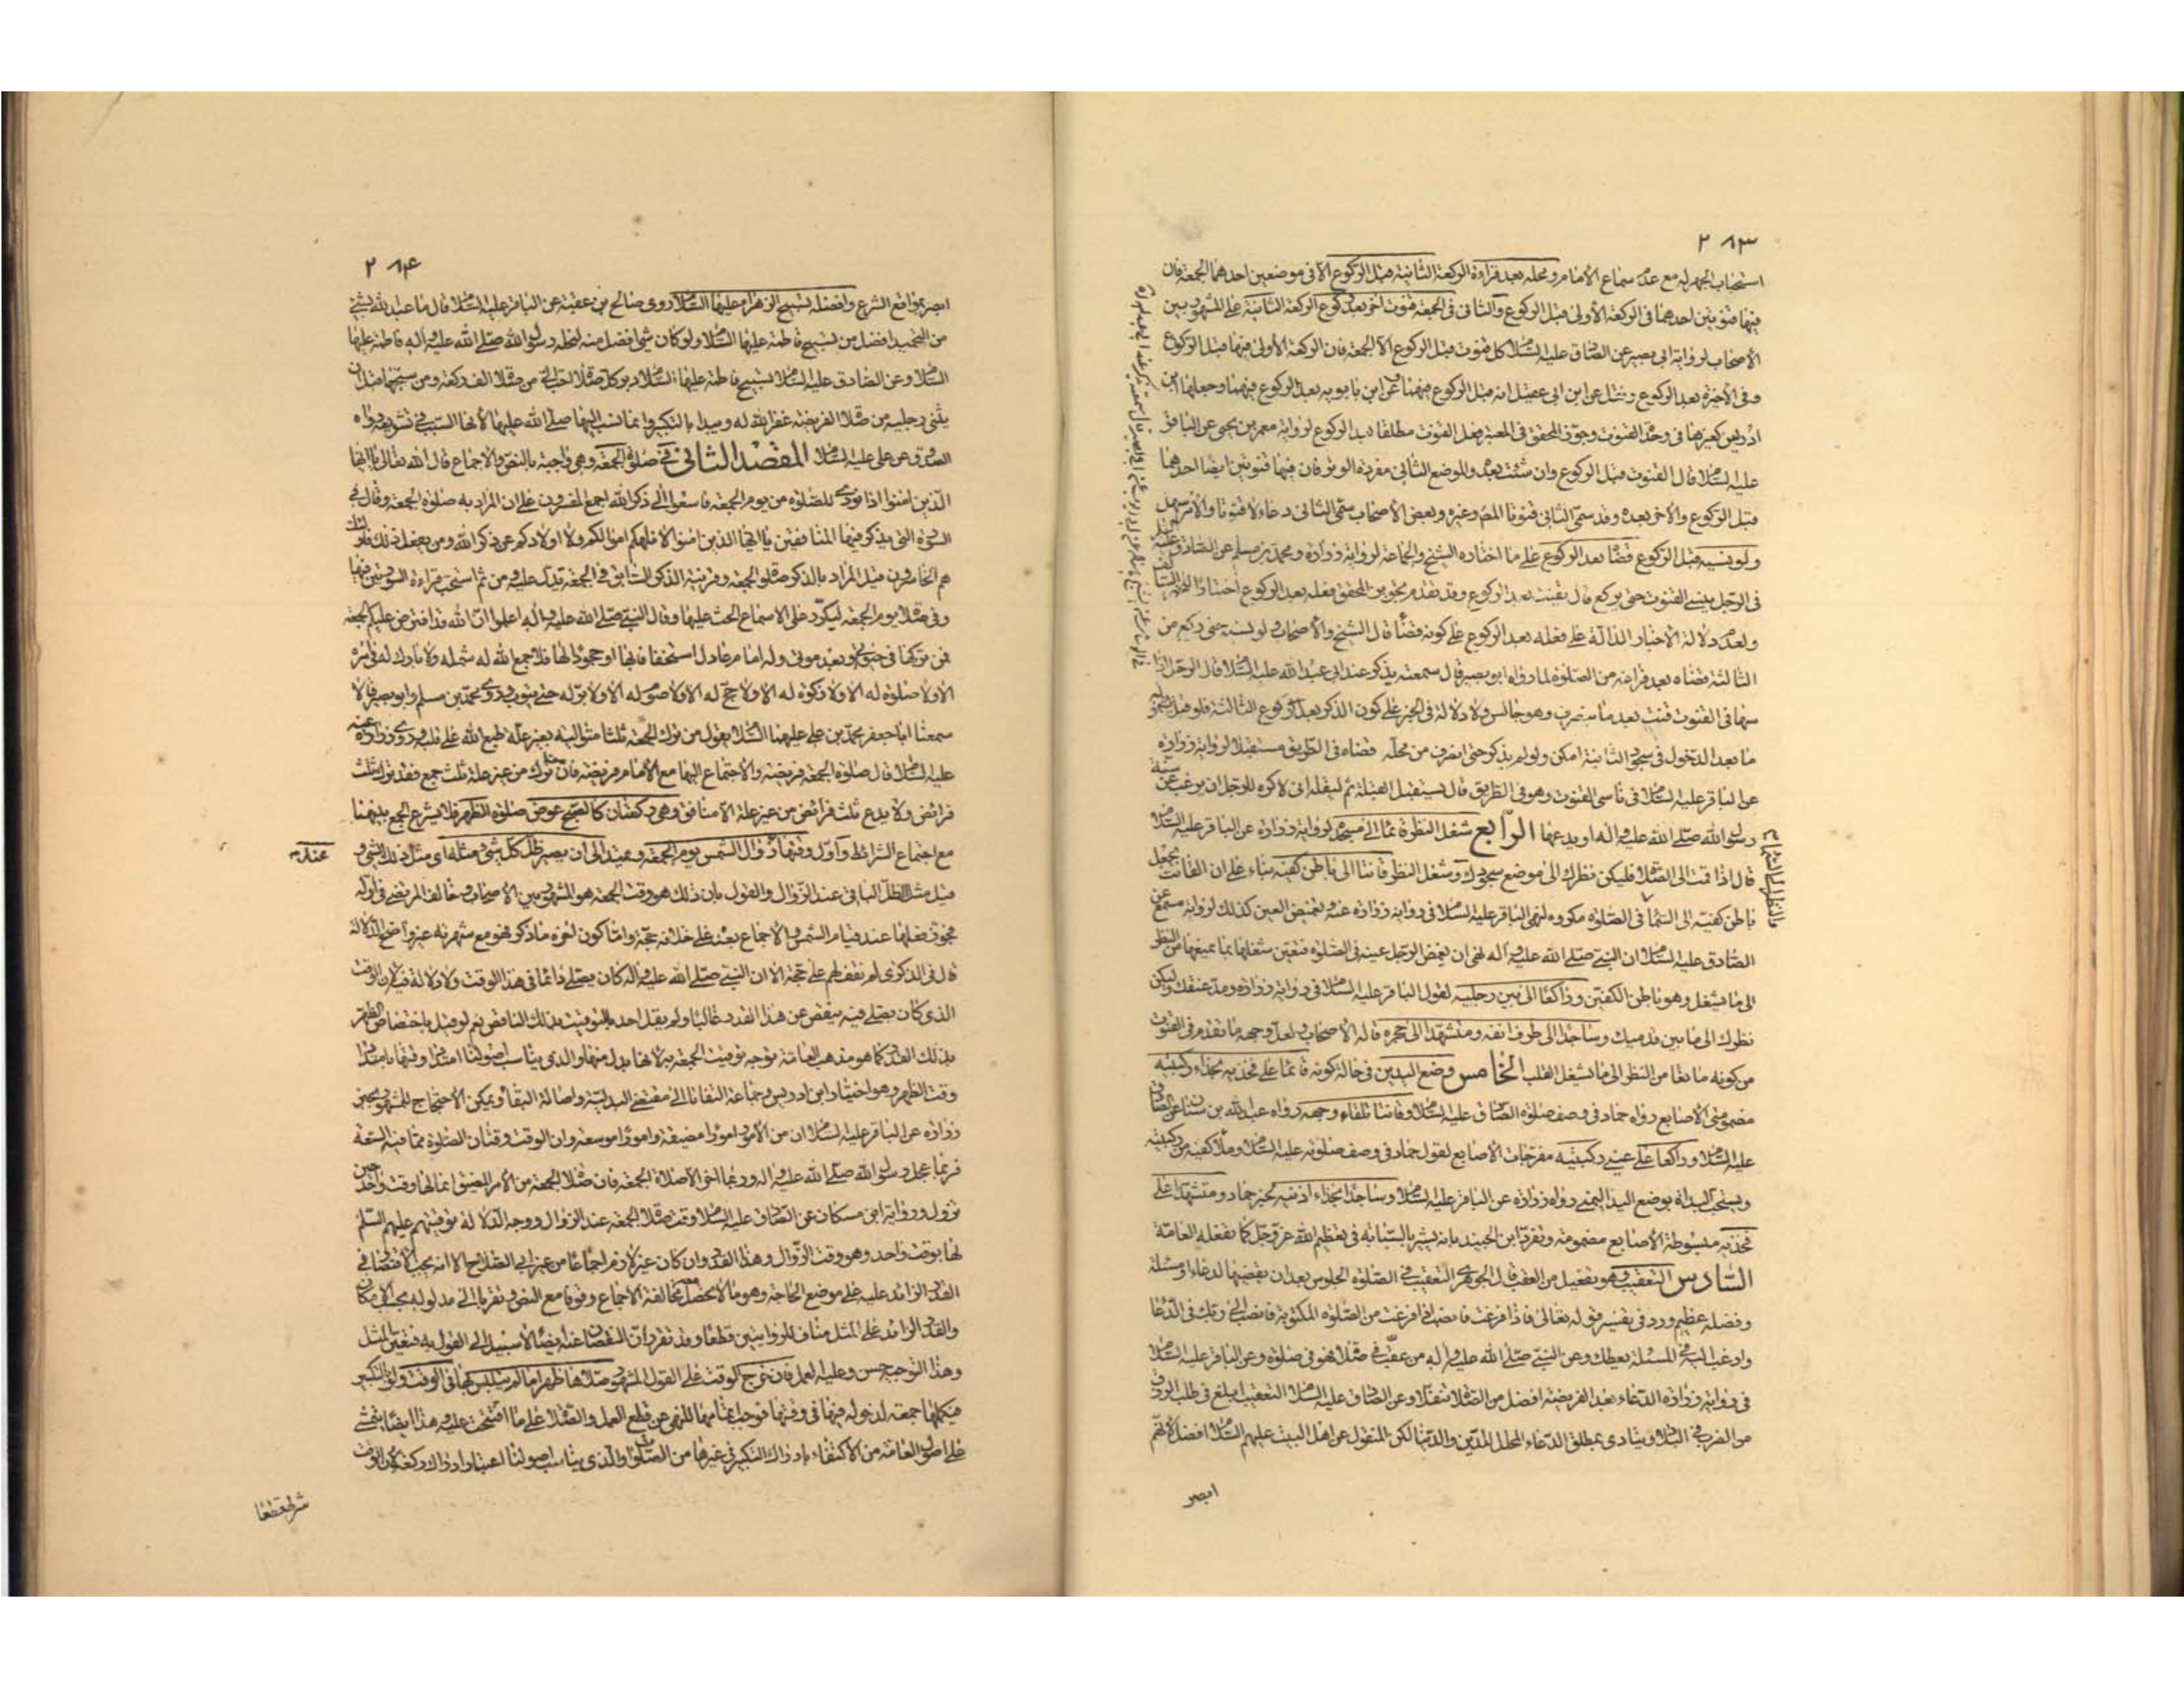 ٢٨٣
استحباب الجهر له مع عدم سماع الامام ومحله بعد قراءة الركعة الثانية قبل الركوع الا في موضعين احدهما الجمعة فان
فيها قنوتين احدهما في الركعة الاولى قبل الركوع والثاني في الجمعة قنوت اخر بعد ركوع الركعة الثانية على المشهور بين
الاصحاب لرواية ابي بصير عن الصادق عليه السلام كل قنوت قبل الركوع الا الجمعة فان الركعة الاولى فيها قبل الركوع
وفي الاخيرة بعد الركوع ونقل عن ابن ابي عقيل انه قبل الركوع فيهما وعن ابن بابويه بعد الركوع فيهما وجعلها ابن
ادريس كغيرها في وحدة القنوت وجوز المحقق في المعتبر فعل القنوت مطلقا بعد الركوع لرواية معمر بن يحيى عن الباقر
عليه السلام قال القنوت قبل الركوع وان شئت بعده والموضع الثاني مفردة الوتر فان فيها قنوتين ايضا احدهما
قبل الركوع والاخر بعده وقد سمى الثاني قنوتا المص وغيره وبعض الاصحاب سمى الثاني دعاء لا قنوتا والامر سهل
ولو نسيه قبل الركوع قضاه بعد الركوع على ما اختاره الشيخ والجماعة لرواية زرارة ومحمد بن مسلم عن الصادق عليه
في الرجل ينسى القنوت حتى يركع قال يقنت بعد الركوع وقد تقدم تجويز المحقق فعله بعد الركوع اختيارا
ولعدم دلالة الاخبار الدالة على فعله بعد الركوع على كونه قضاء قال الشيخ والاصحاب ولو نسيه حتى ركع من
الثالثة قضاه بعد فراغه من الصلوة لما رواه ابو بصير قال سمعته يذكر عند ابي عبد الله عليه السلام قال الرجل اذا
سها في القنوت قنت بعد ما ينصرف وهو جالس ولا دلالة في الخبر على كون الذكر بعد ركوع الثالثة فلو قيل بشموله
ما بعد الدخول في سجود الثانية امكن ولو لم يذكر حتى انصرف من محله قضاه في الطريق مستقبلا لرواية زرارة
عن الباقر عليه السلام في ناسي القنوت وهو في الطريق قال يستقبل القبلة ثم ليقله اني لاكره للرجل ان يرغب عن سنة
رسول الله صلى الله عليه واله او يدعها الرابع شغل النظر قائما الى مسجده لرواية زرارة عن الباقر عليه السلام
قال اذا قمت الى الصلاة فليكن نظرك الى موضع سجودك وشغل النظر قانتا الى باطن كفيه بناء على ان القانت يجعل
باطن كفيه الى السماء في الصلوة مكروه لنهي الباقر عليه السلام في رواية زرارة عنه وتغميض العين كذلك لرواية مسمع عن
الصادق عليه السلام ان النبي صلى الله عليه واله نهى ان يغمض الرجل عينه في الصلوة فتعين شغلها بما يمنعها من النظر
الى ما يشغل وهو باطن الكفين وراكعا الى بين رجليه لقول الباقر عليه السلام في رواية زرارة ومد عنقك وليكن
نظرك الى ما بين قدميك وساجدا الى طرف انفه ومتشهدا الى حجره قاله الاصحاب ولعل وجهه ما تقدم في القنوت
من كونه مانعا من النظر الى ما يشغل القلب الخامس وضع اليدين في حالة كونه قائما على فخذيه بحذاء ركبتيه
مضمومتي الاصابع رواه حماد في وصف صلوة الصادق عليه السلام وقانتا تلقاء وجهه رواه عبد الله بن سنان عن الصادق
عليه السلام وراكعا على عيني ركبتيه مفرجات الاصابع لقول حماد في وصف صلوته عليه السلام وملأ كفيه من ركبتيه
ويستحب البدأة بوضع اليد اليمنى رواه زرارة عن الباقر عليه السلام وساجدا بحذاء اذنيه لخبر حماد ومتشهدا على
فخذيه مبسوطة الاصابع مضمومة وتفرد ابن الجنيد بانه يشير بالسبابة في تعظيم الله عز وجل كما تفعله العامة
السادس التعقيب وهو تفعيل من العقب قال الجوهري التعقيب في الصلوة الجلوس بعد ان يقضيها لدعاء او مسئلة
وفضله عظيم ورد في تفسير قوله تعالى فاذا فرغت فانصب اذا فرغت من الصلوة المكتوبة فانصب الى ربك في الدعاء
وارغب اليه في المسئلة يعطك وعن النبي صلى الله عليه واله من عقب في صلاة فهو في صلوة وعن الباقر عليه السلام
في رواية زرارة الدعاء بعد الفريضة افضل من الصلاة تنفلا وعن الصادق عليه السلام التعقيب ابلغ في طلب الرزق
من الضرب في البلاد ويتادى بمطلق الدعاء المحلل للدين والدنيا لكن المنقول عن اهل البيت عليهم السلام افضل لانهم
ابصر
٢٨۴
ابصر بمواقع الشرع وافضله تسبيح الزهراء عليها السلام روى صالح بن عقبة عن الباقر عليه السلام قال ما عبد الله بشئ
من التحميد افضل من تسبيح فاطمة عليها السلام ولو كان شئ افضل منه لنحله رسول الله صلى الله عليه واله فاطمة عليها
السلام وعن الصادق عليه السلام تسبيح فاطمة عليها السلام دبر كل صلاة احب الي من صلاة الف ركعة ومن سبحها قبل ان
يثني رجليه من صلاة الفريضة غفر الله له ويبدا بالتكبير وانما نسب اليها صلى الله عليها لانها السبب في تشريعه رواه
الصدوق عن علي عليه السلام المقصد الثاني في صلوة الجمعة وهي واجبة بالنص والاجماع قال الله تعالى يا ايها
الذين امنوا اذا نودي للصلوة من يوم الجمعة فاسعوا الى ذكر الله اجمع المفسرون على ان المراد به صلوة الجمعة وقال في
السورة التي يذكر فيها المنافقين يا ايها الذين امنوا لا تلهكم اموالكم ولا اولادكم عن ذكر الله ومن يفعل ذلك فاولئك
هم الخاسرون قيل المراد بالذكر صلوة الجمعة وقرينة الذكر السابق في الجمعة تدل عليه ومن ثم استحب قراءة السورتين فيها
وفي صلاة يوم الجمعة ليكرر على الاسماع الحث عليها وقال النبي صلى الله عليه واله اعلموا ان الله قد افترض عليكم الجمعة
فمن تركها في حيوتي وبعد موتي وله امام عادل استخفافا بها او جحودا لها فلا جمع الله له شمله ولا بارك له في امره
الا ولا صلوة له الا ولا زكوة له الا ولا حج له الا ولا صوم له الا ولا بر له حتى يتوب وروى محمد بن مسلم وابو بصير قالا
سمعنا ابا جعفر محمد بن علي عليهما السلام يقول من ترك الجمعة ثلثا متوالية بغير علة طبع الله على قلبه وروى زرارة عنه
عليه السلام قال صلوة الجمعة فريضة والاجتماع اليها مع الامام فريضة فان ترك من غير علة ثلث جمع فقد ترك ثلث
فرائض ولا يدع ثلث فرائض من غير علة الا منافق وهي ركعتان كالصبح عوض صلوة الظهر فلا يشرع الجمع بينهما
مع اجتماع الشرائط واول وقتها زوال الشمس يوم الجمعة ويمتد الى ان يصير ظل كل شئ مثله اي مثل ذلك الشئ و
قيل مثل الظل الباقي عند الزوال والقول بان ذلك هو وقت الجمعة هو المشهور بين الاصحاب وخالف المرتضى في اوله
فجوز فعلها عند قيام الشمس والاجماع بعده على خلافه حجة واما كون اخره ما ذكر فهو مع شهرته غير واضح الدلالة
قال في الذكرى لم نقف لهم على حجة الا ان النبي صلى الله عليه واله كان يصلي دائما في هذا الوقت ولا دلالة فيه لان الوقت
الذي كان يصلي فيه ينقص عن هذا القدر غالبا ولم يقل احد بالتوقيت بذلك الناقص نعم لو قيل باختصاص الظهر
بذلك القدر كما هو مذهب العامة توجه توقيت الجمعة به لانها بدل منها والذي يناسب اصولنا امتداد وقتها بامتداد
وقت الظهر وهو اختيار ابن ادريس وجماعة التفاتا الى مقتضى البدلية واصالة البقاء ويمكن الاحتجاج للمشهور بخبر
زرارة عن الباقر عليه السلام ان من الامور امورا مضيقة وامورا موسعة وان الوقت وقتان الصلوة مما فيه السعة
فربما عجل رسول الله صلى الله عليه واله وربما اخر الا صلاة الجمعة فان صلاة الجمعة من الامر المضيق انما لها وقت واحد حين
تزول ورواية ابن مسكان عن الصادق عليه السلام وقت صلاة الجمعة عند الزوال ووجه الدلالة توقيتهم عليهم السلام
لها بوقت واحد وهو وقت الزوال وهذا القدر وان كان غير لازم اجماعا من غير ابي الصلاح الا انه يجب الاقتصار في
القدر الزائد عليه على موضع الحاجة وهو ما لا يحصل معه مخالفة الاجماع وقوفا مع النص وتقريبا الى مدلوله بحسب الامكان
والقدر الزائد على المثل مناف للروايتين قطعا وقد تقرر ان النقصان عنه ايضا لا سبيل الى القول به فتعين المثل
وهذا التوجيه حسن وعليه العمل فان خرج الوقت على القول المشهور صلاها ظهرا ما لم يتلبس بها في الوقت ولو بالتكبير
فيكملها جمعة لدخوله فيها في وقتها فوجب اتمامها للنهي عن قطع العمل والصلاة على ما افتتحت عليه وهذا ايضا يتمشى
على اصول العامة من الاكتفاء بادراك التكبير في غيرها من الصلوات والذي يناسب اصولنا اعتبار ادراك ركعة لان الوقت
شرط قطعا